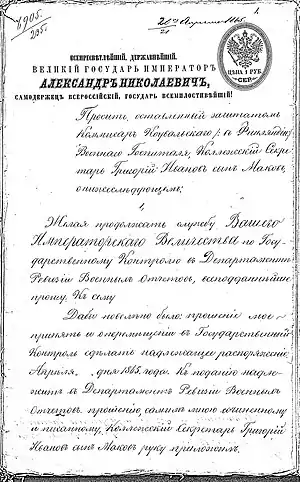 1905.
205.
1.
20го Апреля 1865.
21
ЦѢНА 1 РУБ.
СЕР.
ВСЕПРЕСВѢТЛѢЙШІЙ, ДЕРЖАВНѢЙШІЙ,
ВЕЛИКІЙ ГОСУДАРЬ ИМПЕРАТОРЪ
АЛЕКСАНДРЪ НИКОЛАЕВИЧЪ,
САМОДЕРЖЕЦЪ ВСЕРОССІЙСКІЙ, ГОСУДАРЬ ВСЕМИЛОСТИВѢЙШІЙ!
Проситъ, оставленный заштатомъ
Коммисаръ
Военнаго Госпиталя, Коллежскій Секре-
тарь Григорій Ивановъ сынъ Маковъ,
о нижеслѣдующемъ:
1,
Желая продолжать службу Вашего
Императорскаго Величества по Госу-
дарственному Контролю въ Департаментѣ
Ревизіи Военныхъ Отчетовъ, всеподданнѣйше
прошу. Къ сему
Дабы повелѣно было: прошеніе мое
принять и о перемѣщеніи въ Государственный
Контроль сдѣлать надлежащее распоряженіе.
Апрѣля, дня 1865 года. Къ поданію надле-
житъ въ Департаментъ Ревизіи Военныхъ
Отчетовъ. прошеніе, самимъ мною сочиненному
и писанному, Коллежскій Секретарь Григорій
Ивановъ сынъ Маковъ руку приложилъ.